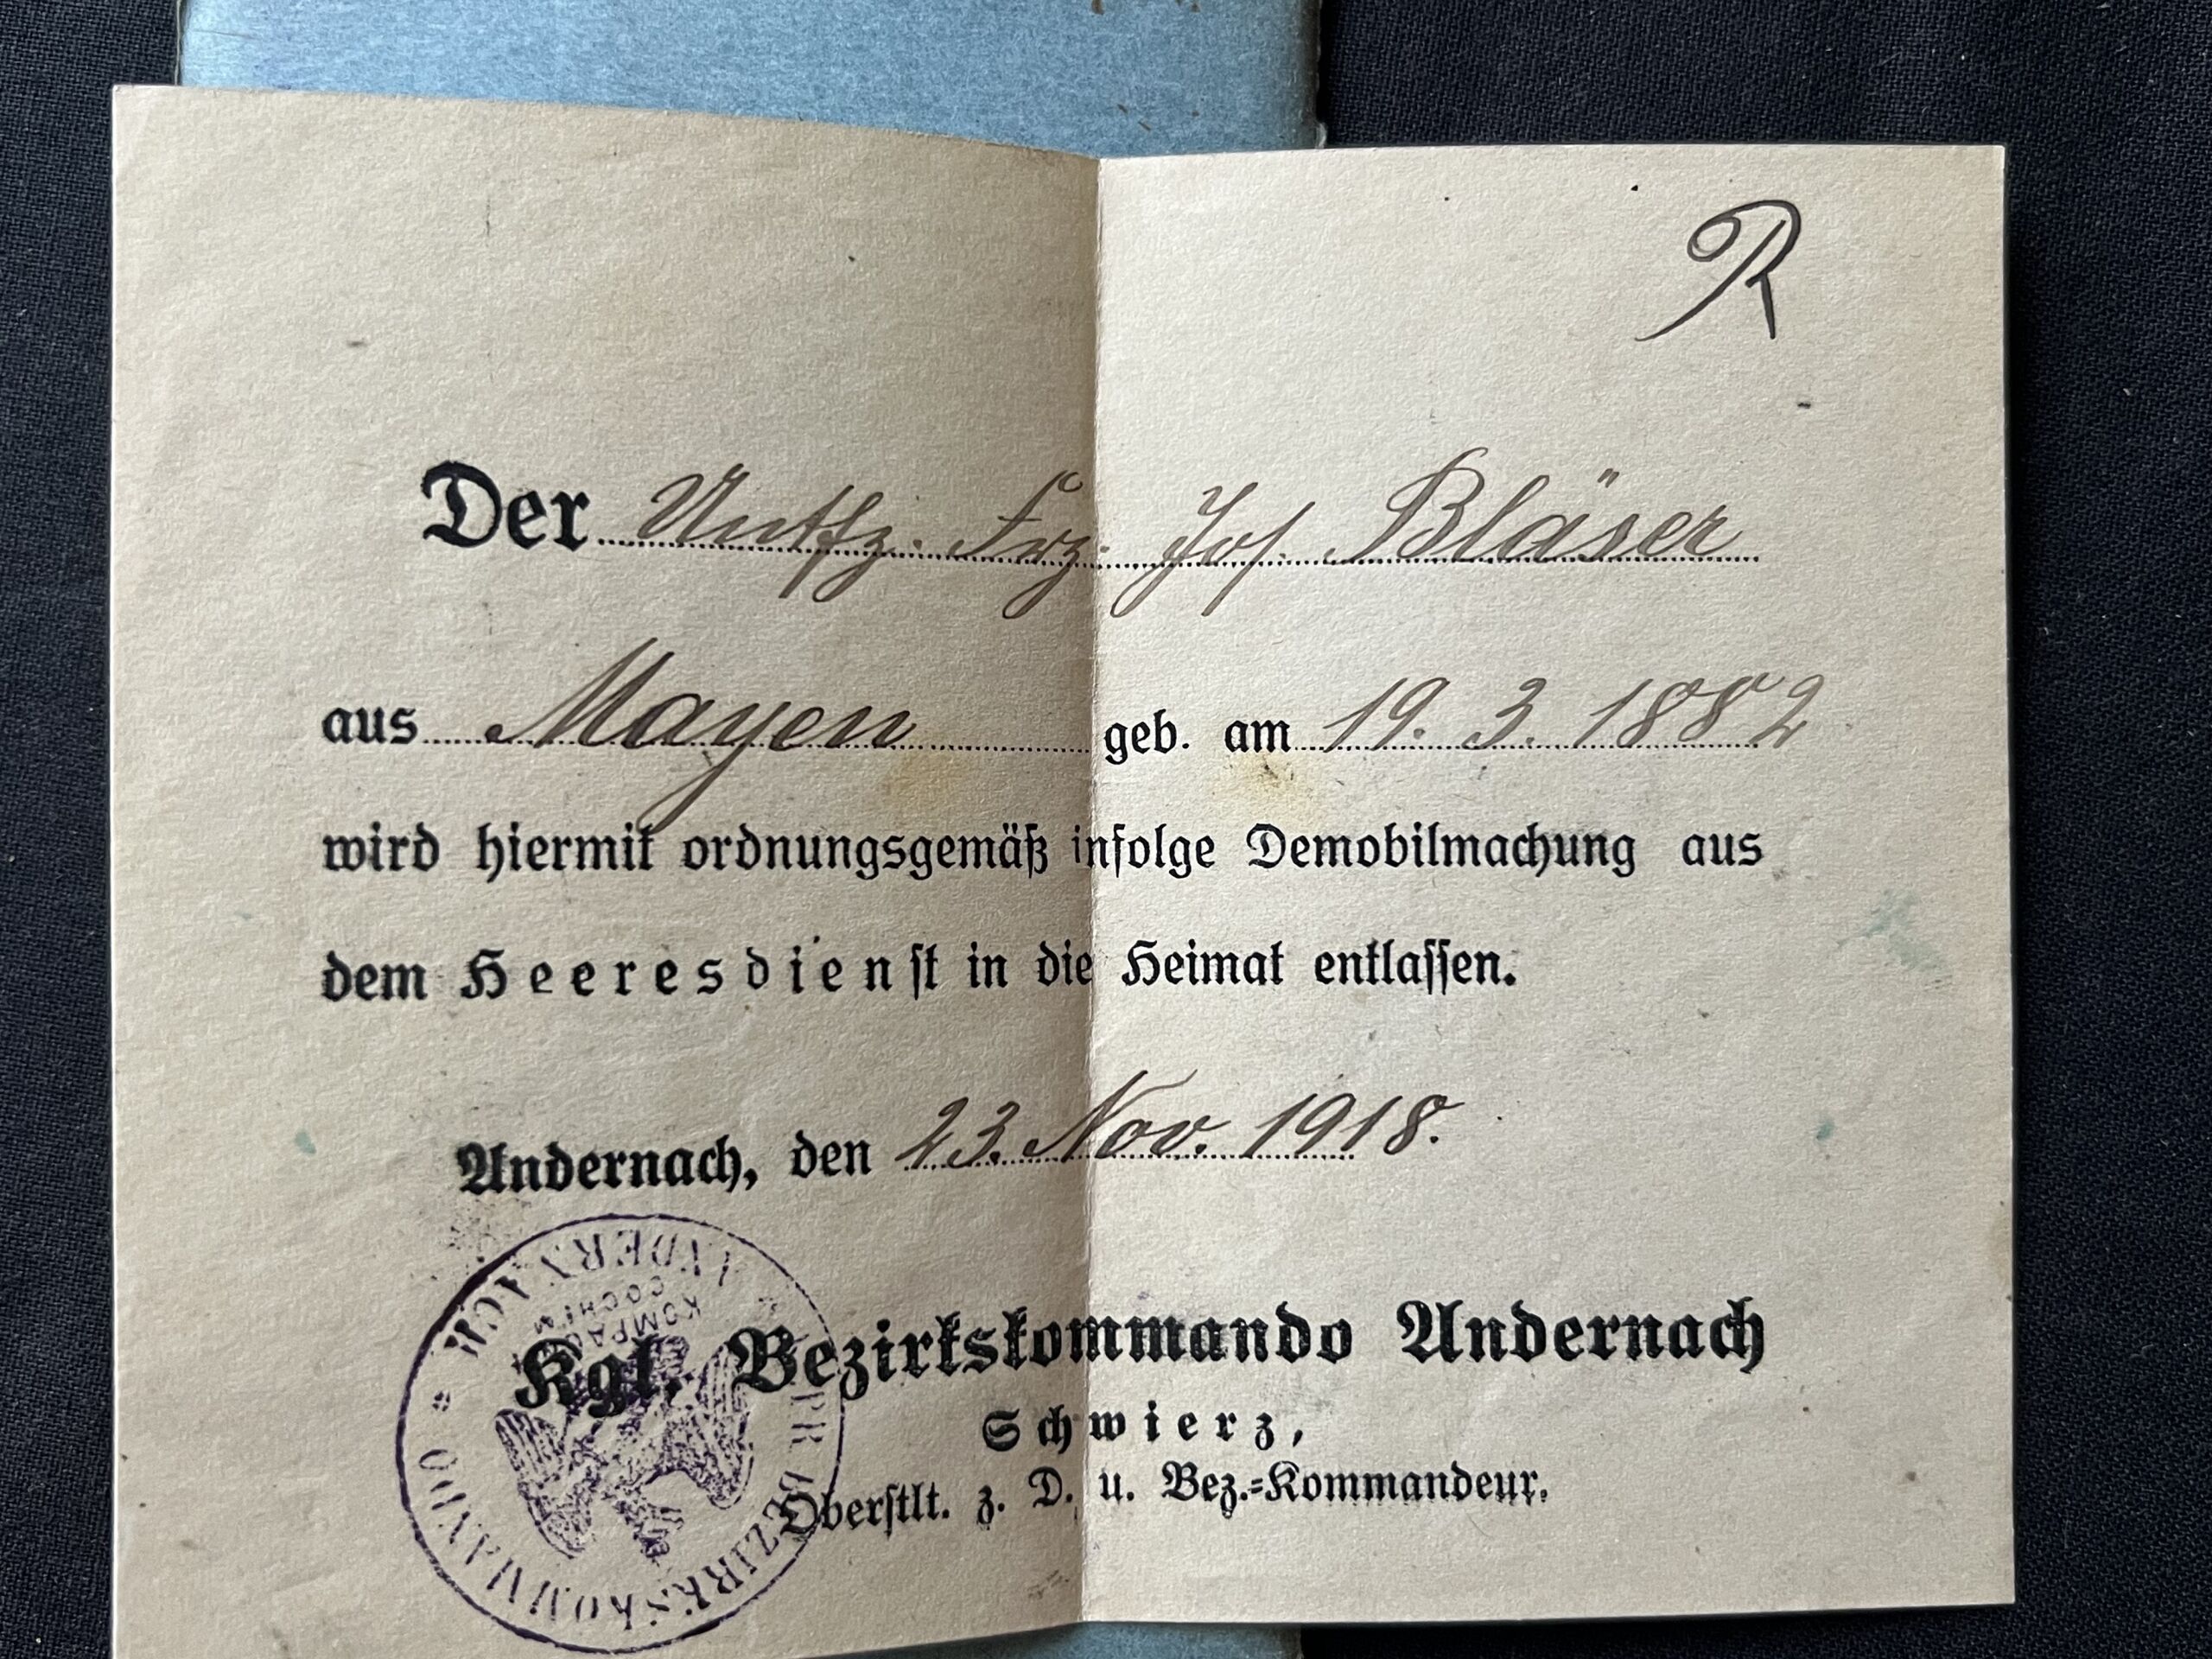 R
Der Untffz. Frz. Jos. Bläser
aus Mayen geb. am 19. 3. 1882
wird hiermit ordnungsgemäß infolge Demobilmachung aus
dem Heeresdienst in die Heimat entlassen.
Andernach, den 23. Nov. 1918.
Kgl. Bezirkskommando Andernach
Schwierz,
Oberstlt. z. D. u. Bez.-Kommandeur.
PR BEZIRKSKOMMANDO * ANDERNACH
KOMPAGNIE
COCHEM